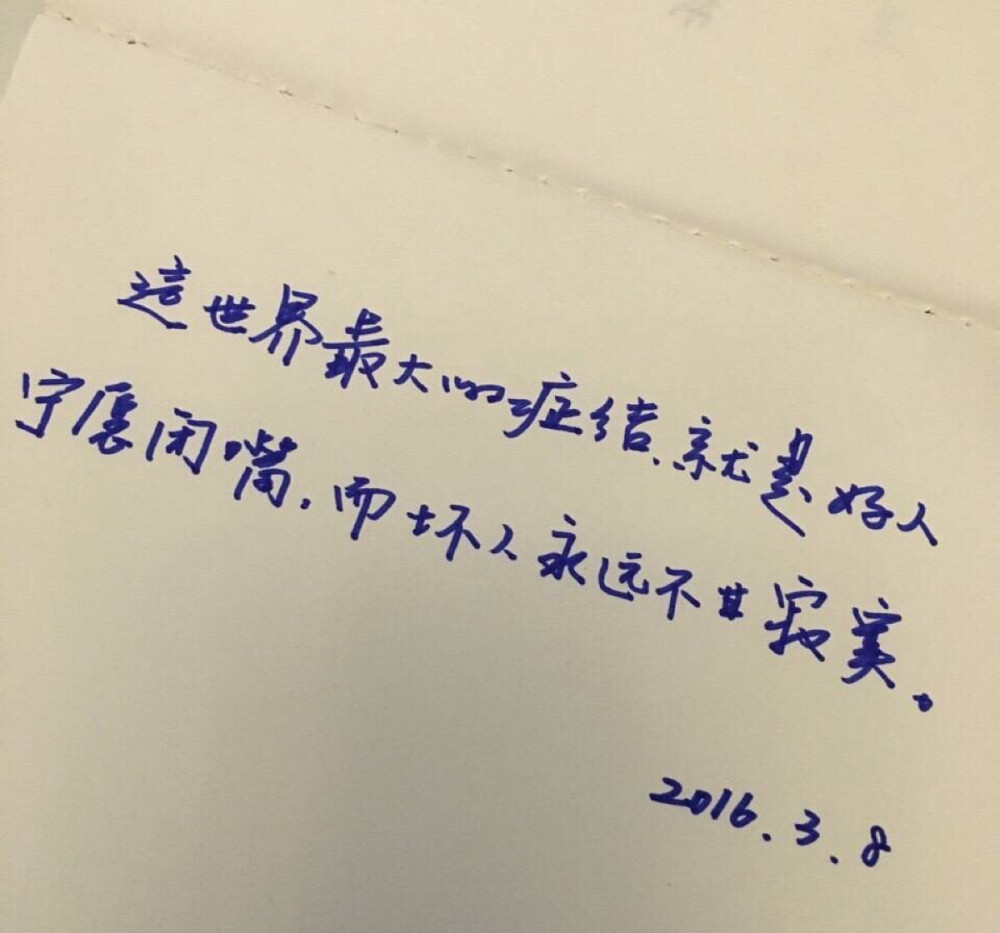 這世界最大的症结、就是好人
宁愿闭嘴，而坏人永远不甘寂寞。
2016.3.8